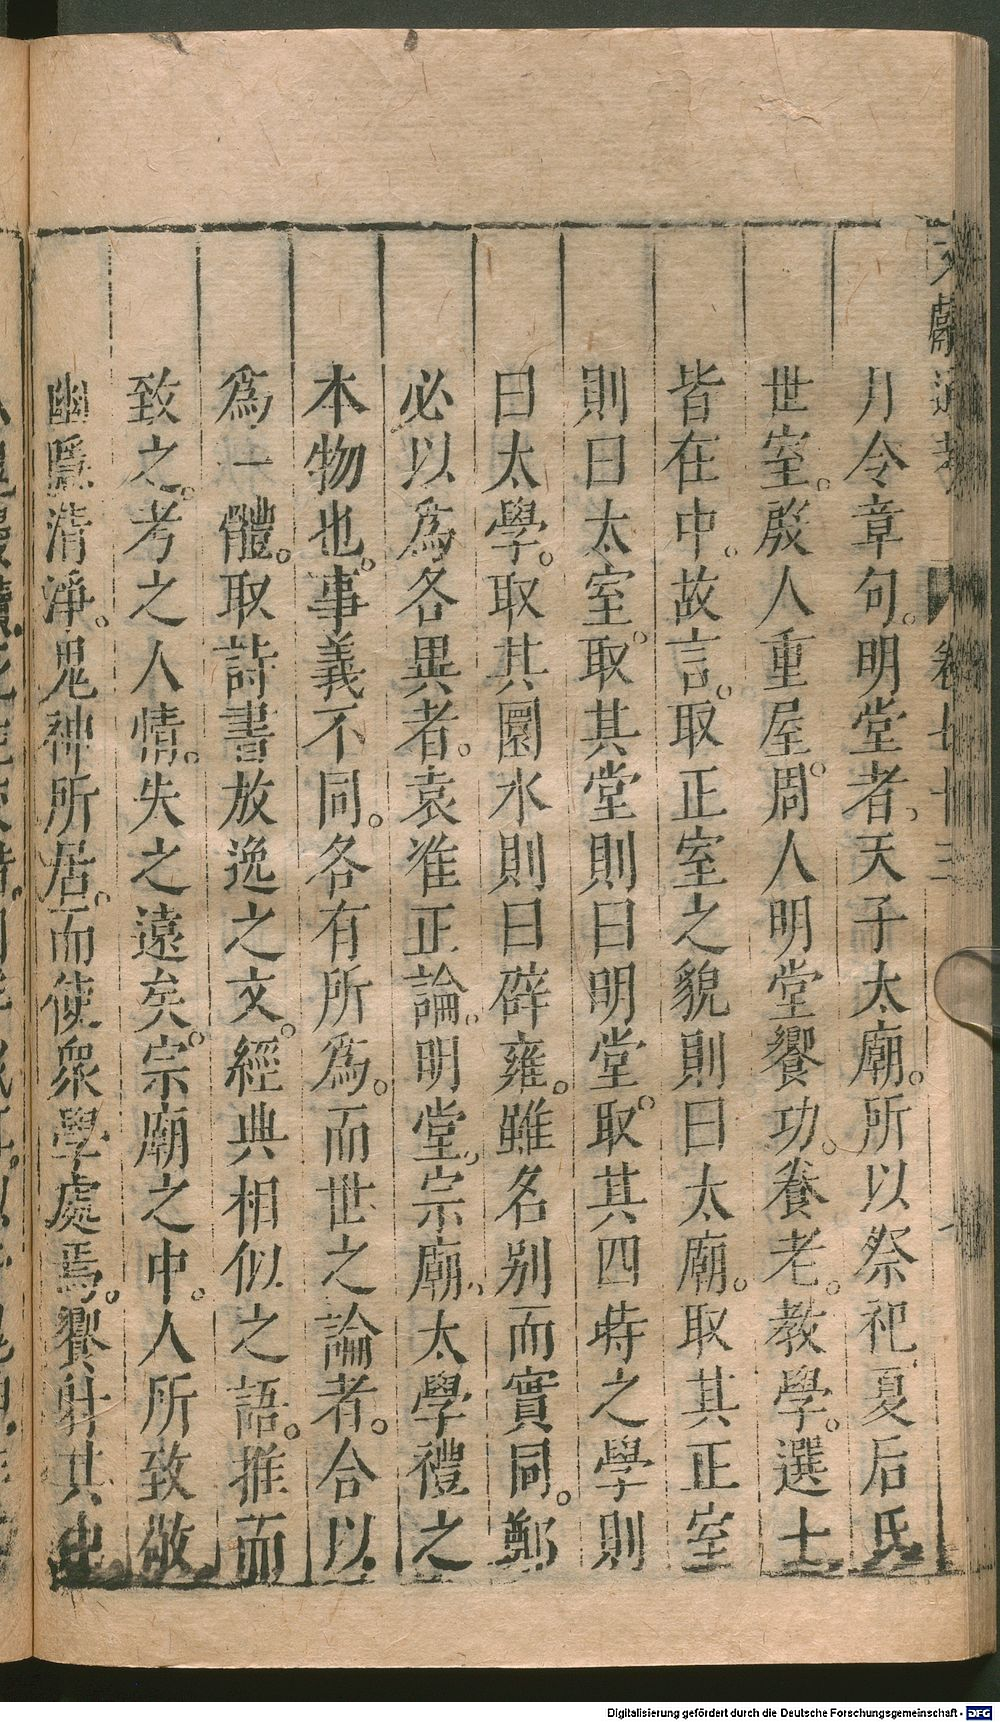 文獻通考 卷七十三
月令章句。明堂者、天子太廟。所以祭祀夏后氏
世室。殷人重屋。周人明堂饗功。養老。教學。選士
皆在中。故言。取正室之貌則曰太廟。取其正室
則曰太室。取其堂則曰明堂。取其四時之學則
曰太學。取其圜水則曰辟雍。雖名別而實同。鄭
必以為各異者。袁准正論。明堂、宗廟、太學禮之
本物也。事義不同。各有所為。而世之論者。合以
為一體。取詩書放逸之文。經典相似之語。推而
致之。考之人情。失之遠矣。宗廟之中。人所致敬
幽隱清淨。鬼神所居。而使衆學處焉。饗射其中
Digitalisierung gefördert durch die Deutsche Forschungsgemeinschaft - DFG